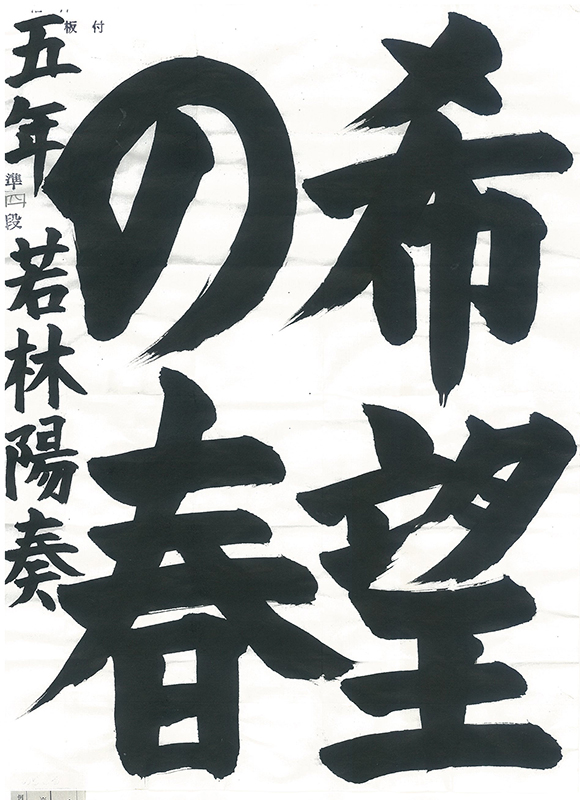 希望
の春
五年 準四段 若林陽奏
付
板